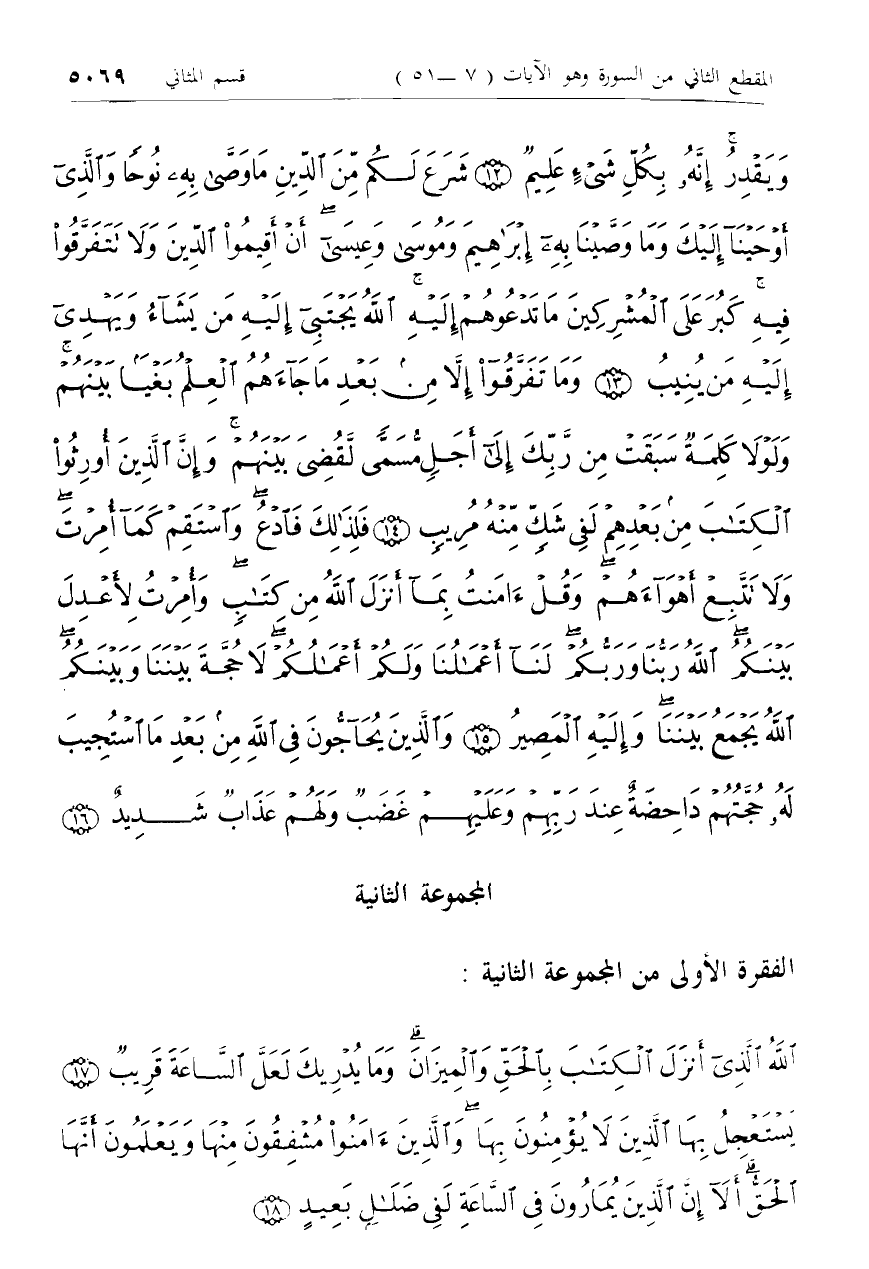 المقطع الثاني من السورة وهو الآيات ( ٧ — ٥١ ) قسم المثاني ٥٠٦٩
وَيَقْدِرُ ۚ إِنَّهُۥ بِكُلِّ شَىْءٍ عَلِيمٌ ﴿١٢﴾ شَرَعَ لَكُم مِّنَ ٱلدِّينِ مَا وَصَّىٰ بِهِۦ نُوحًا وَٱلَّذِىٓ
أَوْحَيْنَآ إِلَيْكَ وَمَا وَصَّيْنَا بِهِۦٓ إِبْرَٰهِيمَ وَمُوسَىٰ وَعِيسَىٰٓ ۖ أَنْ أَقِيمُوا۟ ٱلدِّينَ وَلَا تَتَفَرَّقُوا۟
فِيهِ ۚ كَبُرَ عَلَى ٱلْمُشْرِكِينَ مَا تَدْعُوهُمْ إِلَيْهِ ۚ ٱللَّهُ يَجْتَبِىٓ إِلَيْهِ مَن يَشَآءُ وَيَهْدِىٓ
إِلَيْهِ مَن يُنِيبُ ﴿١٣﴾ وَمَا تَفَرَّقُوٓا۟ إِلَّا مِنۢ بَعْدِ مَا جَآءَهُمُ ٱلْعِلْمُ بَغْيًۢا بَيْنَهُمْ ۚ
وَلَوْلَا كَلِمَةٌ سَبَقَتْ مِن رَّبِّكَ إِلَىٰٓ أَجَلٍ مُّسَمًّى لَّقُضِىَ بَيْنَهُمْ ۚ وَإِنَّ ٱلَّذِينَ أُورِثُوا۟
ٱلْكِتَٰبَ مِنۢ بَعْدِهِمْ لَفِى شَكٍّ مِّنْهُ مُرِيبٍ ﴿١٤﴾ فَلِذَٰلِكَ فَٱدْعُ ۖ وَٱسْتَقِمْ كَمَآ أُمِرْتَ ۖ
وَلَا تَتَّبِعْ أَهْوَآءَهُمْ ۖ وَقُلْ ءَامَنتُ بِمَآ أَنزَلَ ٱللَّهُ مِن كِتَٰبٍ ۖ وَأُمِرْتُ لِأَعْدِلَ
بَيْنَكُمُ ۖ ٱللَّهُ رَبُّنَا وَرَبُّكُمْ ۖ لَنَآ أَعْمَٰلُنَا وَلَكُمْ أَعْمَٰلُكُمْ ۖ لَا حُجَّةَ بَيْنَنَا وَبَيْنَكُمُ ۖ
ٱللَّهُ يَجْمَعُ بَيْنَنَا ۖ وَإِلَيْهِ ٱلْمَصِيرُ ﴿١٥﴾ وَٱلَّذِينَ يُحَآجُّونَ فِى ٱللَّهِ مِنۢ بَعْدِ مَا ٱسْتُجِيبَ
لَهُۥ حُجَّتُهُمْ دَاحِضَةٌ عِندَ رَبِّهِمْ وَعَلَيْهِمْ غَضَبٌ وَلَهُمْ عَذَابٌ شَدِيدٌ ﴿١٦﴾
المجموعة الثانية
الفقرة الأولى من المجموعة الثانية :
ٱللَّهُ ٱلَّذِىٓ أَنزَلَ ٱلْكِتَٰبَ بِٱلْحَقِّ وَٱلْمِيزَانَ ۗ وَمَا يُدْرِيكَ لَعَلَّ ٱلسَّاعَةَ قَرِيبٌ ﴿١٧﴾
يَسْتَعْجِلُ بِهَا ٱلَّذِينَ لَا يُؤْمِنُونَ بِهَا ۖ وَٱلَّذِينَ ءَامَنُوا۟ مُشْفِقُونَ مِنْهَا وَيَعْلَمُونَ أَنَّهَا
ٱلْحَقُّ ۗ أَلَآ إِنَّ ٱلَّذِينَ يُمَارُونَ فِى ٱلسَّاعَةِ لَفِى ضَلَٰلٍۭ بَعِيدٍ ﴿١٨﴾